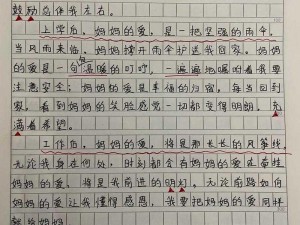 鼓励总伴我左右。
上学后，妈妈的爱，是一把坚强的雨伞。
当风雨来临，妈妈撑开雨伞护送我回家。妈妈
的爱是一句句温暖的叮咛，一遍遍地嘱咐着我要
注意安全；妈妈的爱是幸福的归宿，每当回到
家，看到妈妈的笑脸感觉一切都变得明朗，充
满着希望。
工作后，妈妈的爱，将是那长长的风筝线，
无论我身在何处，时刻都会有妈妈的爱在牵挂
妈妈的爱，将是我前进的明灯。无论前路如何
妈妈的爱让我懂得感恩，我要把妈妈的爱同样
给妈妈